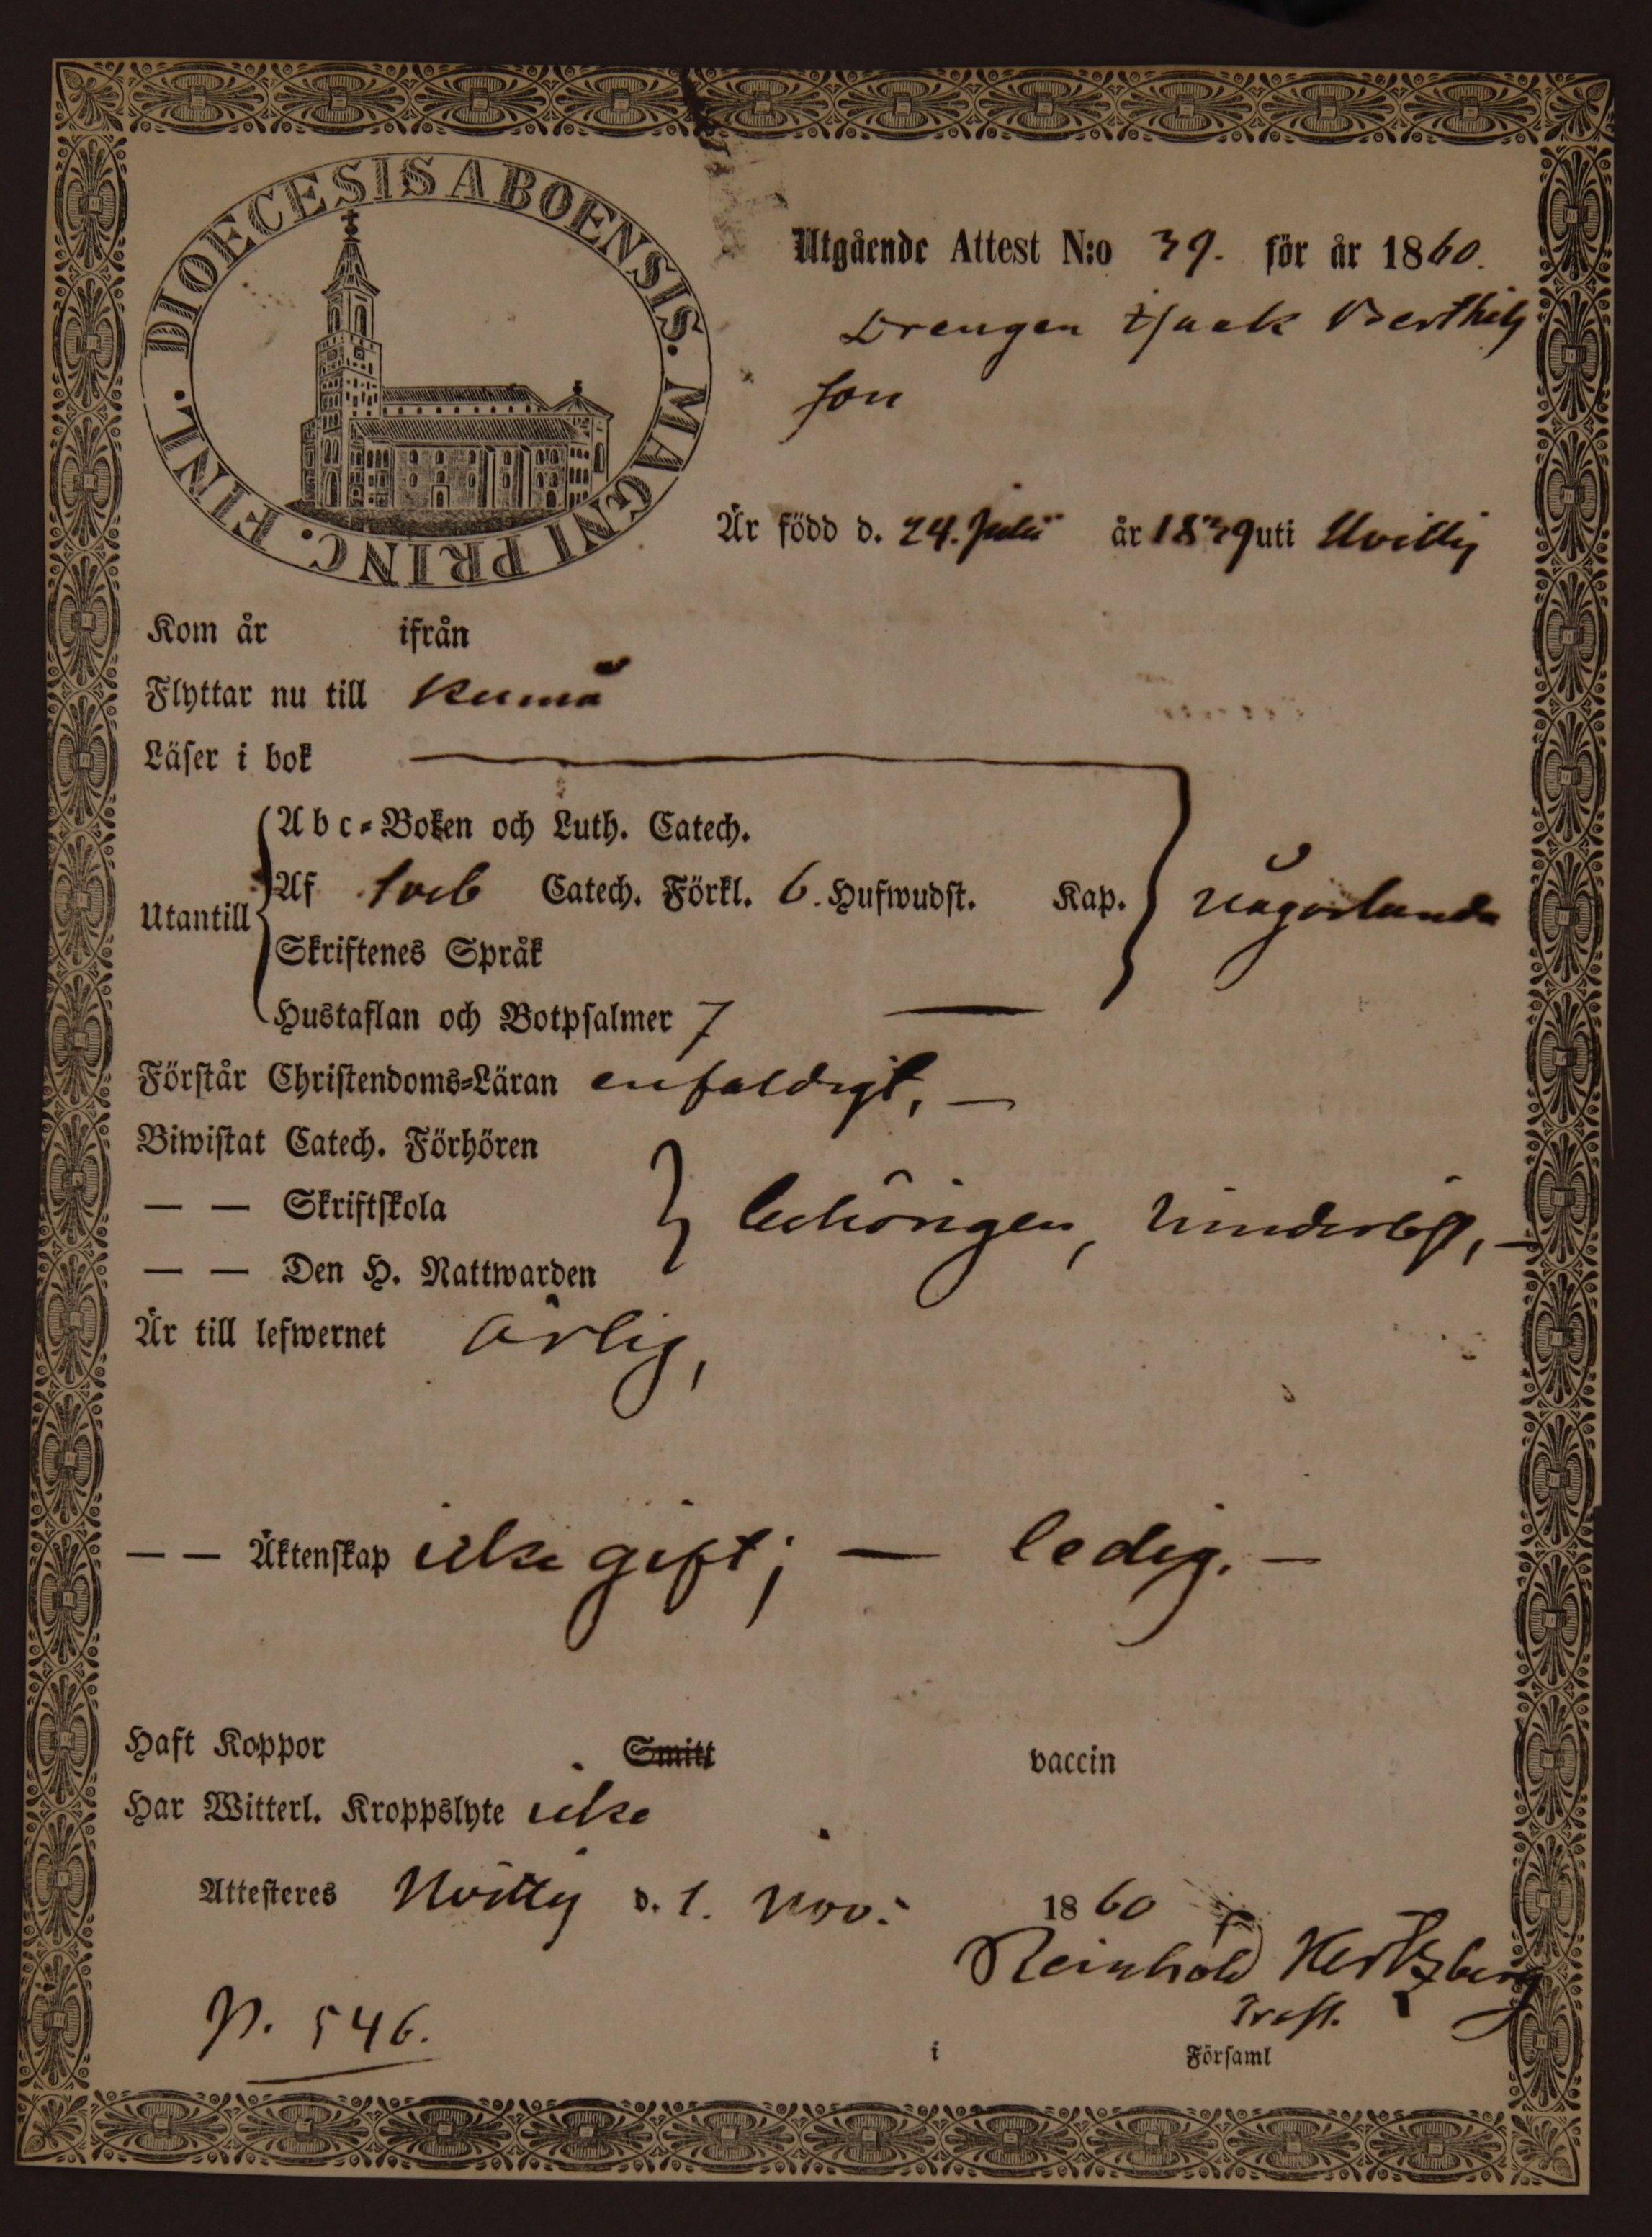 DIOECESIS ABOENSIS. MAGNI PRINC. FINL.
Utgående Attest N:o 39. för år 1860.
Drengen Isaak Berthils
son
Är född d. 24. Julii år 1839 uti Hvittis
Kom år ifrån
Flyttar nu till Kumå
Läser i bok
Abc-Boken och Luth. Catech.
Utantill Af Sveb Catech. Förkl. 6. Hufwudst. Kap. någorlunda
Skriftenes Språk
Hustaflan och Botpsalmer 7 —
Förstår Christendoms-Läran enfaldigt, —
Biwistat Catech. Förhören
— — Skriftskola behörigen,
— — Den H. Nattwarden
Är till lefwernet ärlig,
— — Äktenskap icke gift; — ledig. —
Haft Koppor Smitt vaccin
Har Witterl. Kroppslyte icke
Attesteres Hvittis d. 1. Nov: 1860
Reinhold Hertzberg
Prost.
P. 546.
i Församl